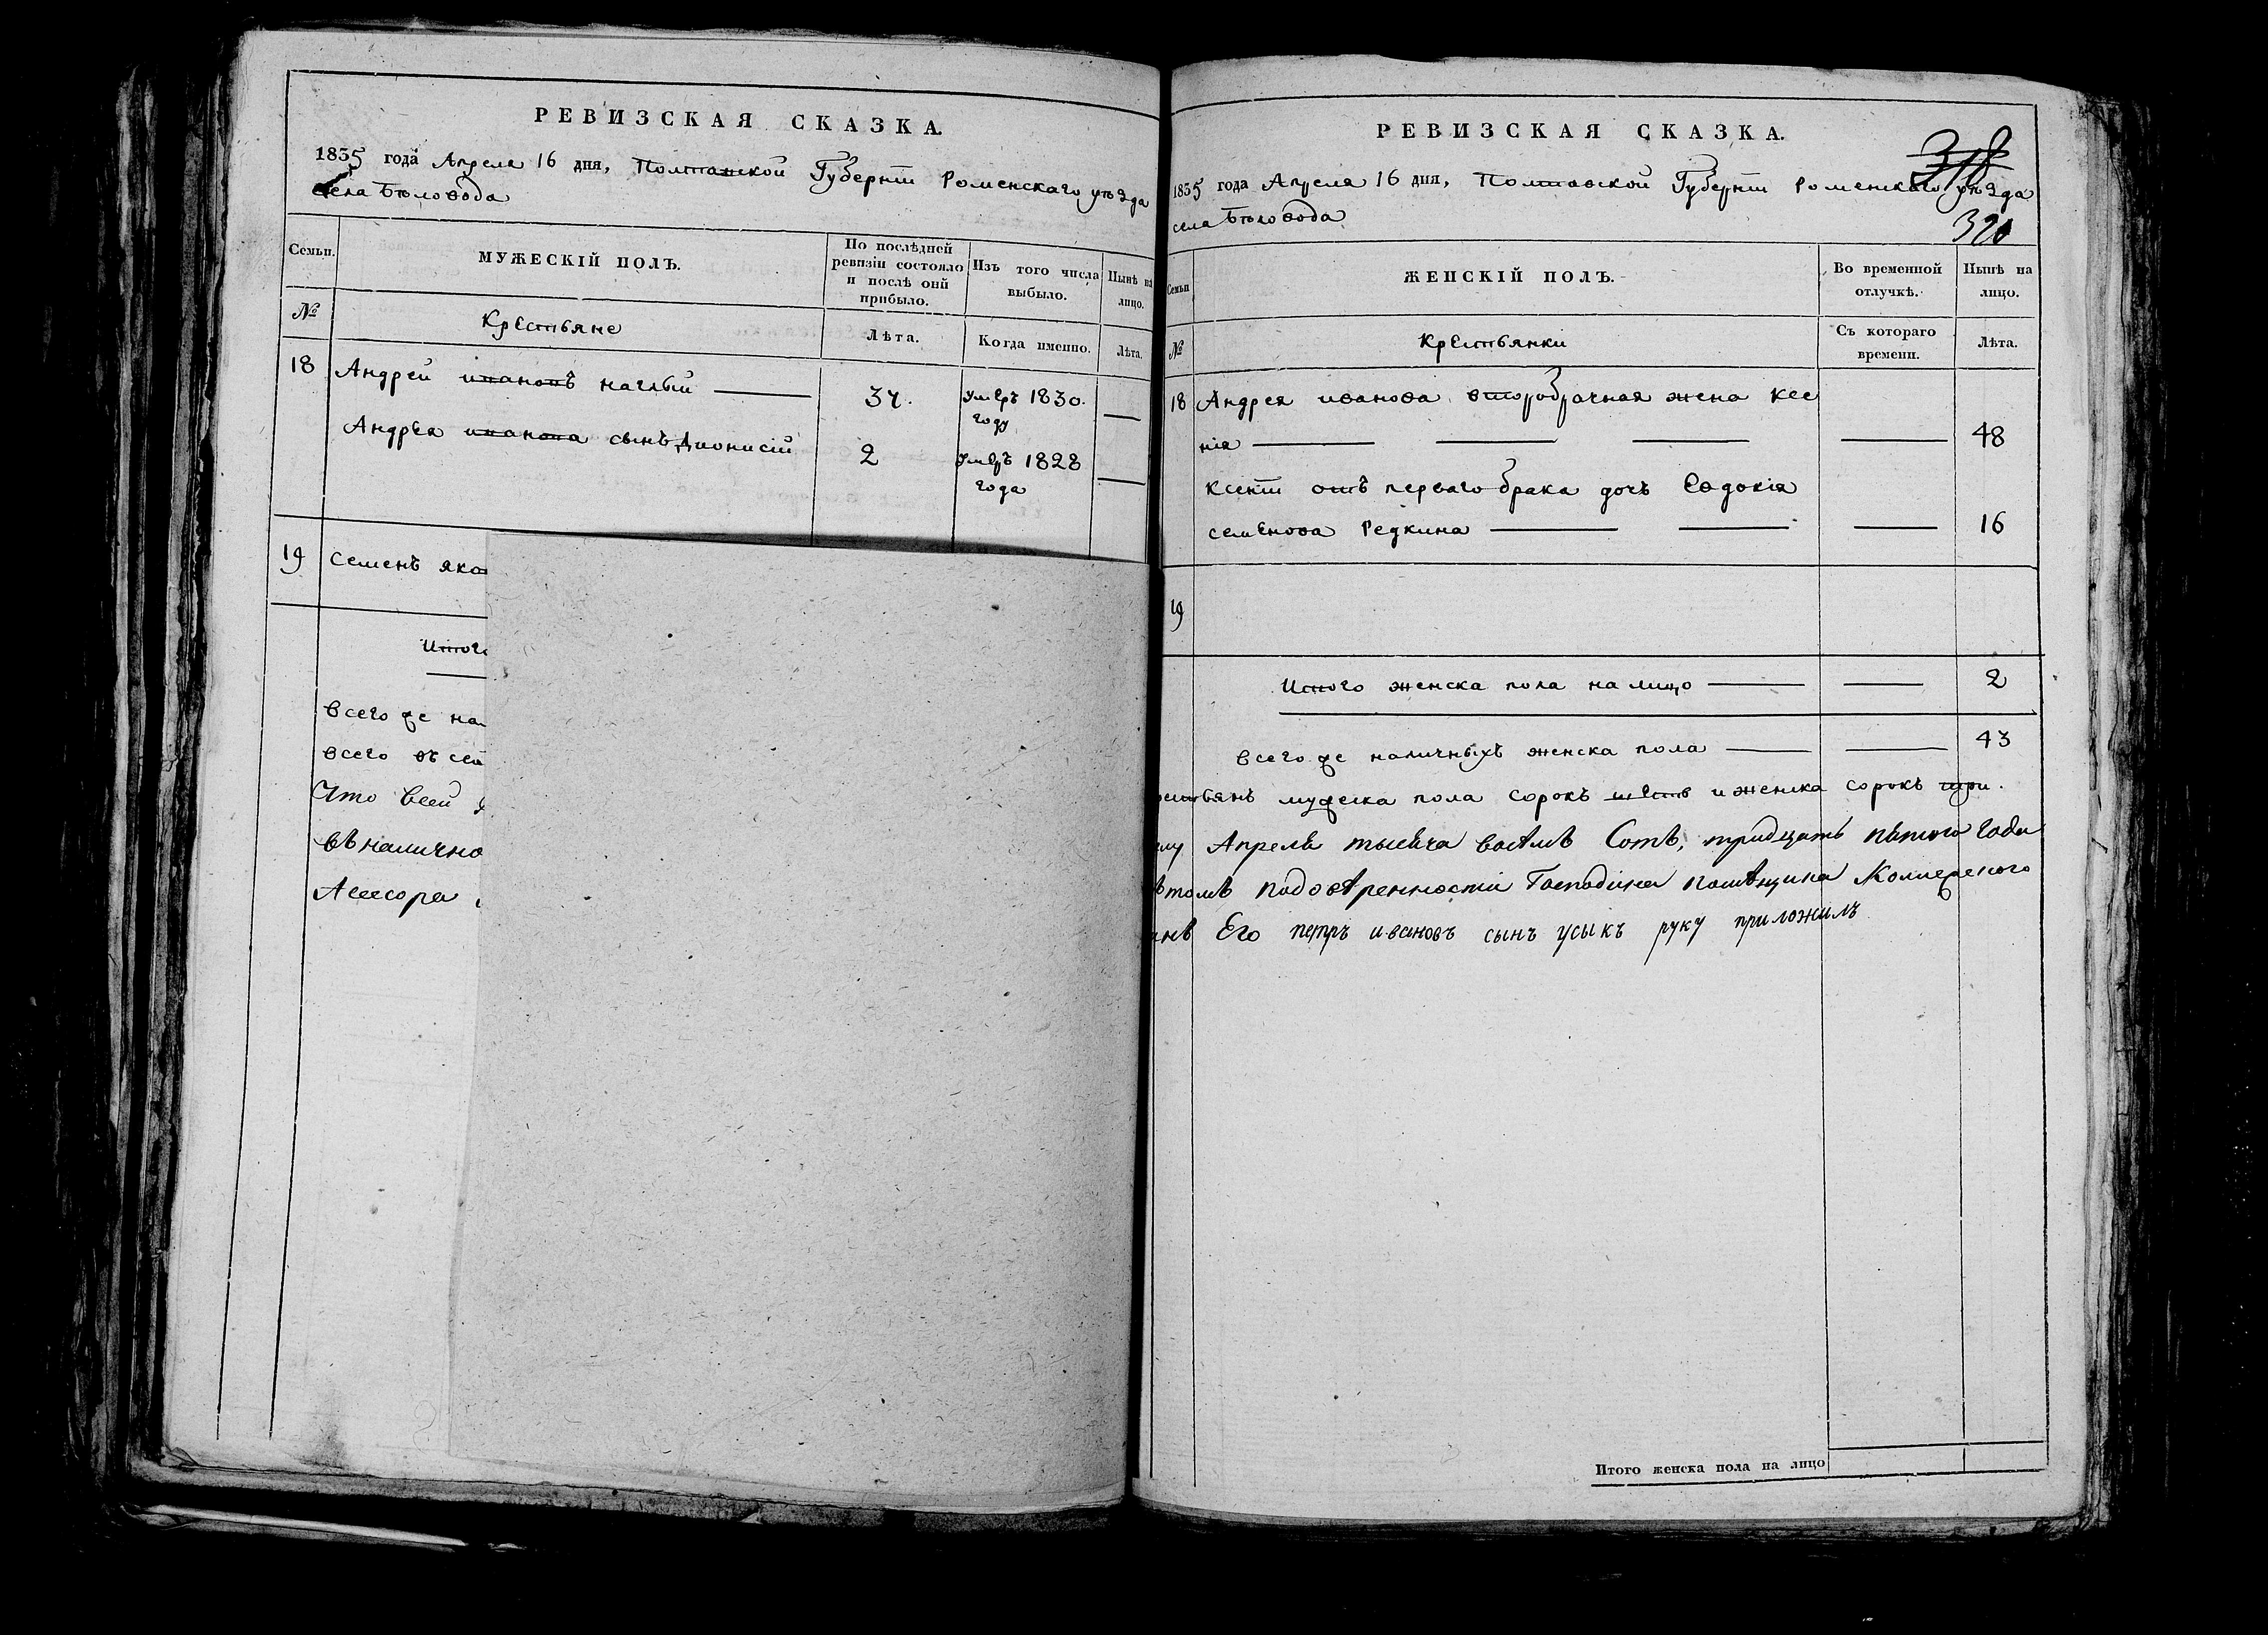 РЕВИЗСКАЯ СКАЗКА.
1835 года Апреля 16 дня, Полтавской Губернѣи Роменскаго уѣзда
села Бѣловода
Семьи.
МУЖЕСКІЙ ПОЛЪ.
По послѣдней
ревизіи состояло
и послѣ онй
прибыло.
Изъ того числа
выбыло.
Нынѣ на
лицо.
№
Крестьяне
Лѣта.
Когда именно.
Лѣта.
18 Андрей ивановъ наглый 37. умеръ 1830.
году
Андрея иванова сынъ Дионисій 2 умеръ 1828
года
19 Семенъ яко
Итого
всего же на
всего въ се
Что всей
въ налично
Асесора
РЕВИЗСКАЯ СКАЗКА.
318
1835 года Апреля 16 дня, Полтавской Губернѣи Роменскаго уѣзда
села Бѣловода
320
Семьи
ЖЕНСКІЙ ПОЛЪ.
Во временной
отлучкѣ.
Нынѣ на
лицо.
№
Крестьянки
Съ котораго
времени.
Лѣта.
18 Андрея иванова второбрачная жена Ксе
нія 48
Ксенѣи отъ перваго брака дочь Евдокія
семенова Редкина 16
19
Итого женска пола на лицо 2
всего же наличныхъ женска пола 43
рестьянъ мужеска пола сорокъ шесть и женска сорокъ три.
Апреля тысеча восемъ Сотъ, тридцать пятого Года
томъ подоверенности Господина помещика Колежского
Его петръ ивановъ сынъ усыкъ руку приложилъ
Итого женска пола на лицо